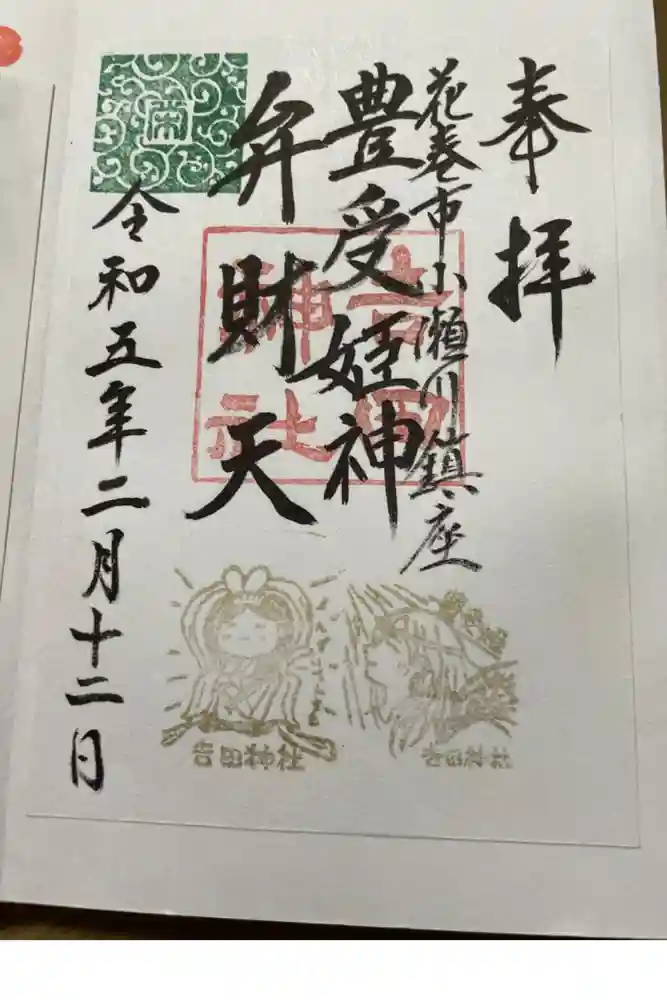 奉拝
花巻市小瀬川鎮座
豊受姫神
弁財天
吉田
神社
令和五年二月十二日
吉田神社
吉田神社